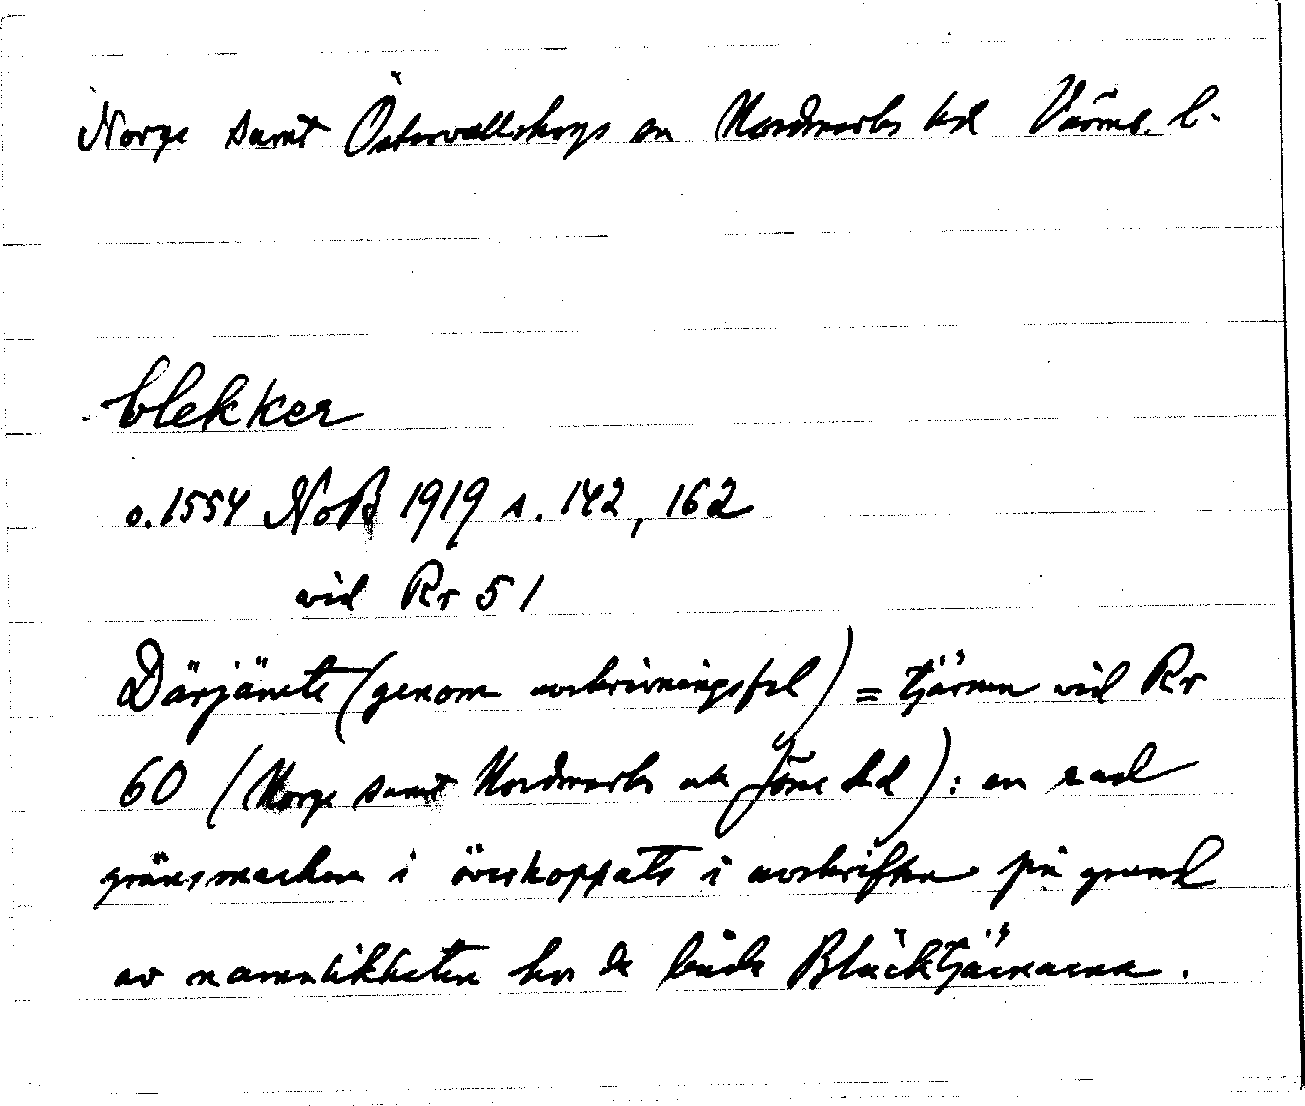 Norge samt Östervallskogs sn Nordmarks hd Värml. l.
blekker
o. 1554 NoB 1919 s. 142, 162
vid Rr 51
Därjämte (genom avskrivningsfel) = tjärnen vid Rr
60 (Norge samt Nordmarks och Jösse hd): en rad
gränsmärken i överhoppats i avskriften på grund
av namnlikheten hos de båda Bläcktjärnarna.